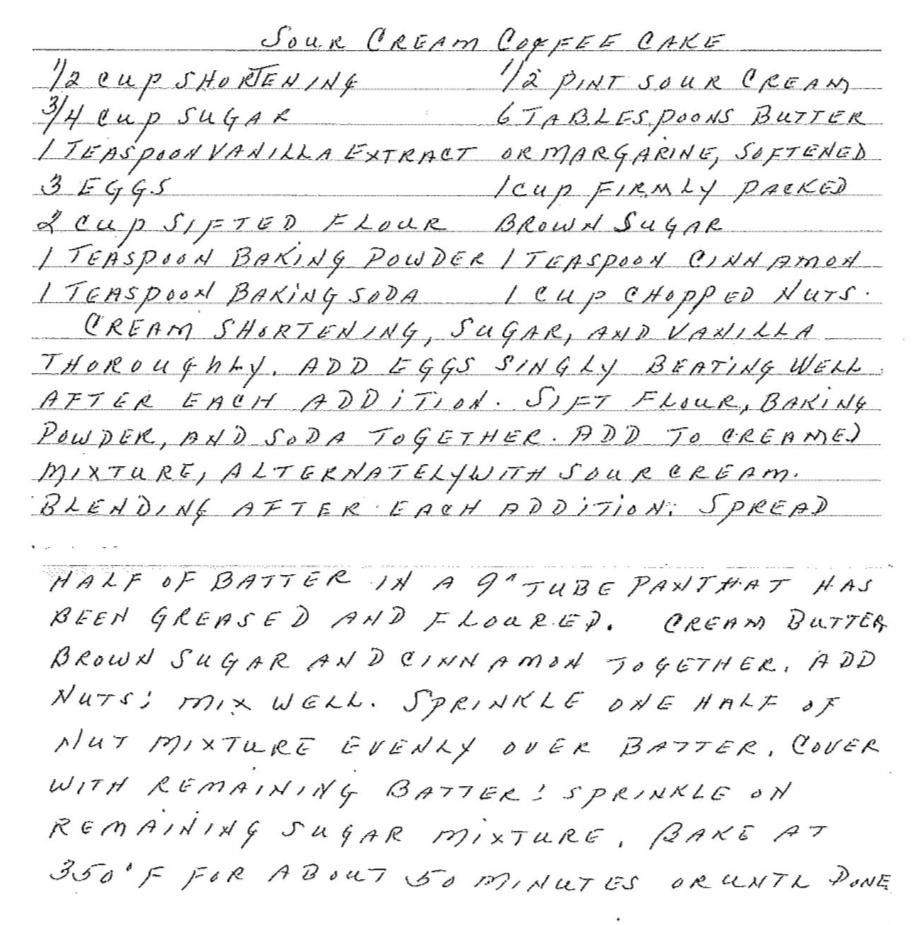 SOUR CREAM COFFEE CAKE
1/2 CUP SHORTENING 1/2 PINT SOUR CREAM
3/4 CUP SUGAR 6 TABLESPOONS BUTTER
1 TEASPOON VANILLA EXTRACT OR MARGARINE, SOFTENED
3 EGGS 1 CUP FIRMLY PACKED
2 CUP SIFTED FLOUR BROWN SUGAR
1 TEASPOON BAKING POWDER 1 TEASPOON CINNAMON
1 TEASPOON BAKING SODA 1 CUP CHOPPED NUTS.
CREAM SHORTENING, SUGAR, AND VANILLA
THOROUGHLY. ADD EGGS SINGLY BEATING WELL
AFTER EACH ADDITION. SIFT FLOUR, BAKING
POWDER, AND SODA TOGETHER. ADD TO CREAMED
MIXTURE, ALTERNATELY WITH SOUR CREAM.
BLENDING AFTER EACH ADDITION. SPREAD
HALF OF BATTER IN A 9" TUBE PAN THAT HAS
BEEN GREASED AND FLOURED. CREAM BUTTER
BROWN SUGAR AND CINNAMON TOGETHER. ADD
NUTS; MIX WELL. SPRINKLE ONE HALF OF
NUT MIXTURE EVENLY OVER BATTER. COVER
WITH REMAINING BATTER; SPRINKLE ON
REMAINING SUGAR MIXTURE. BAKE AT
350°F FOR ABOUT 50 MINUTES OR UNTL DONE